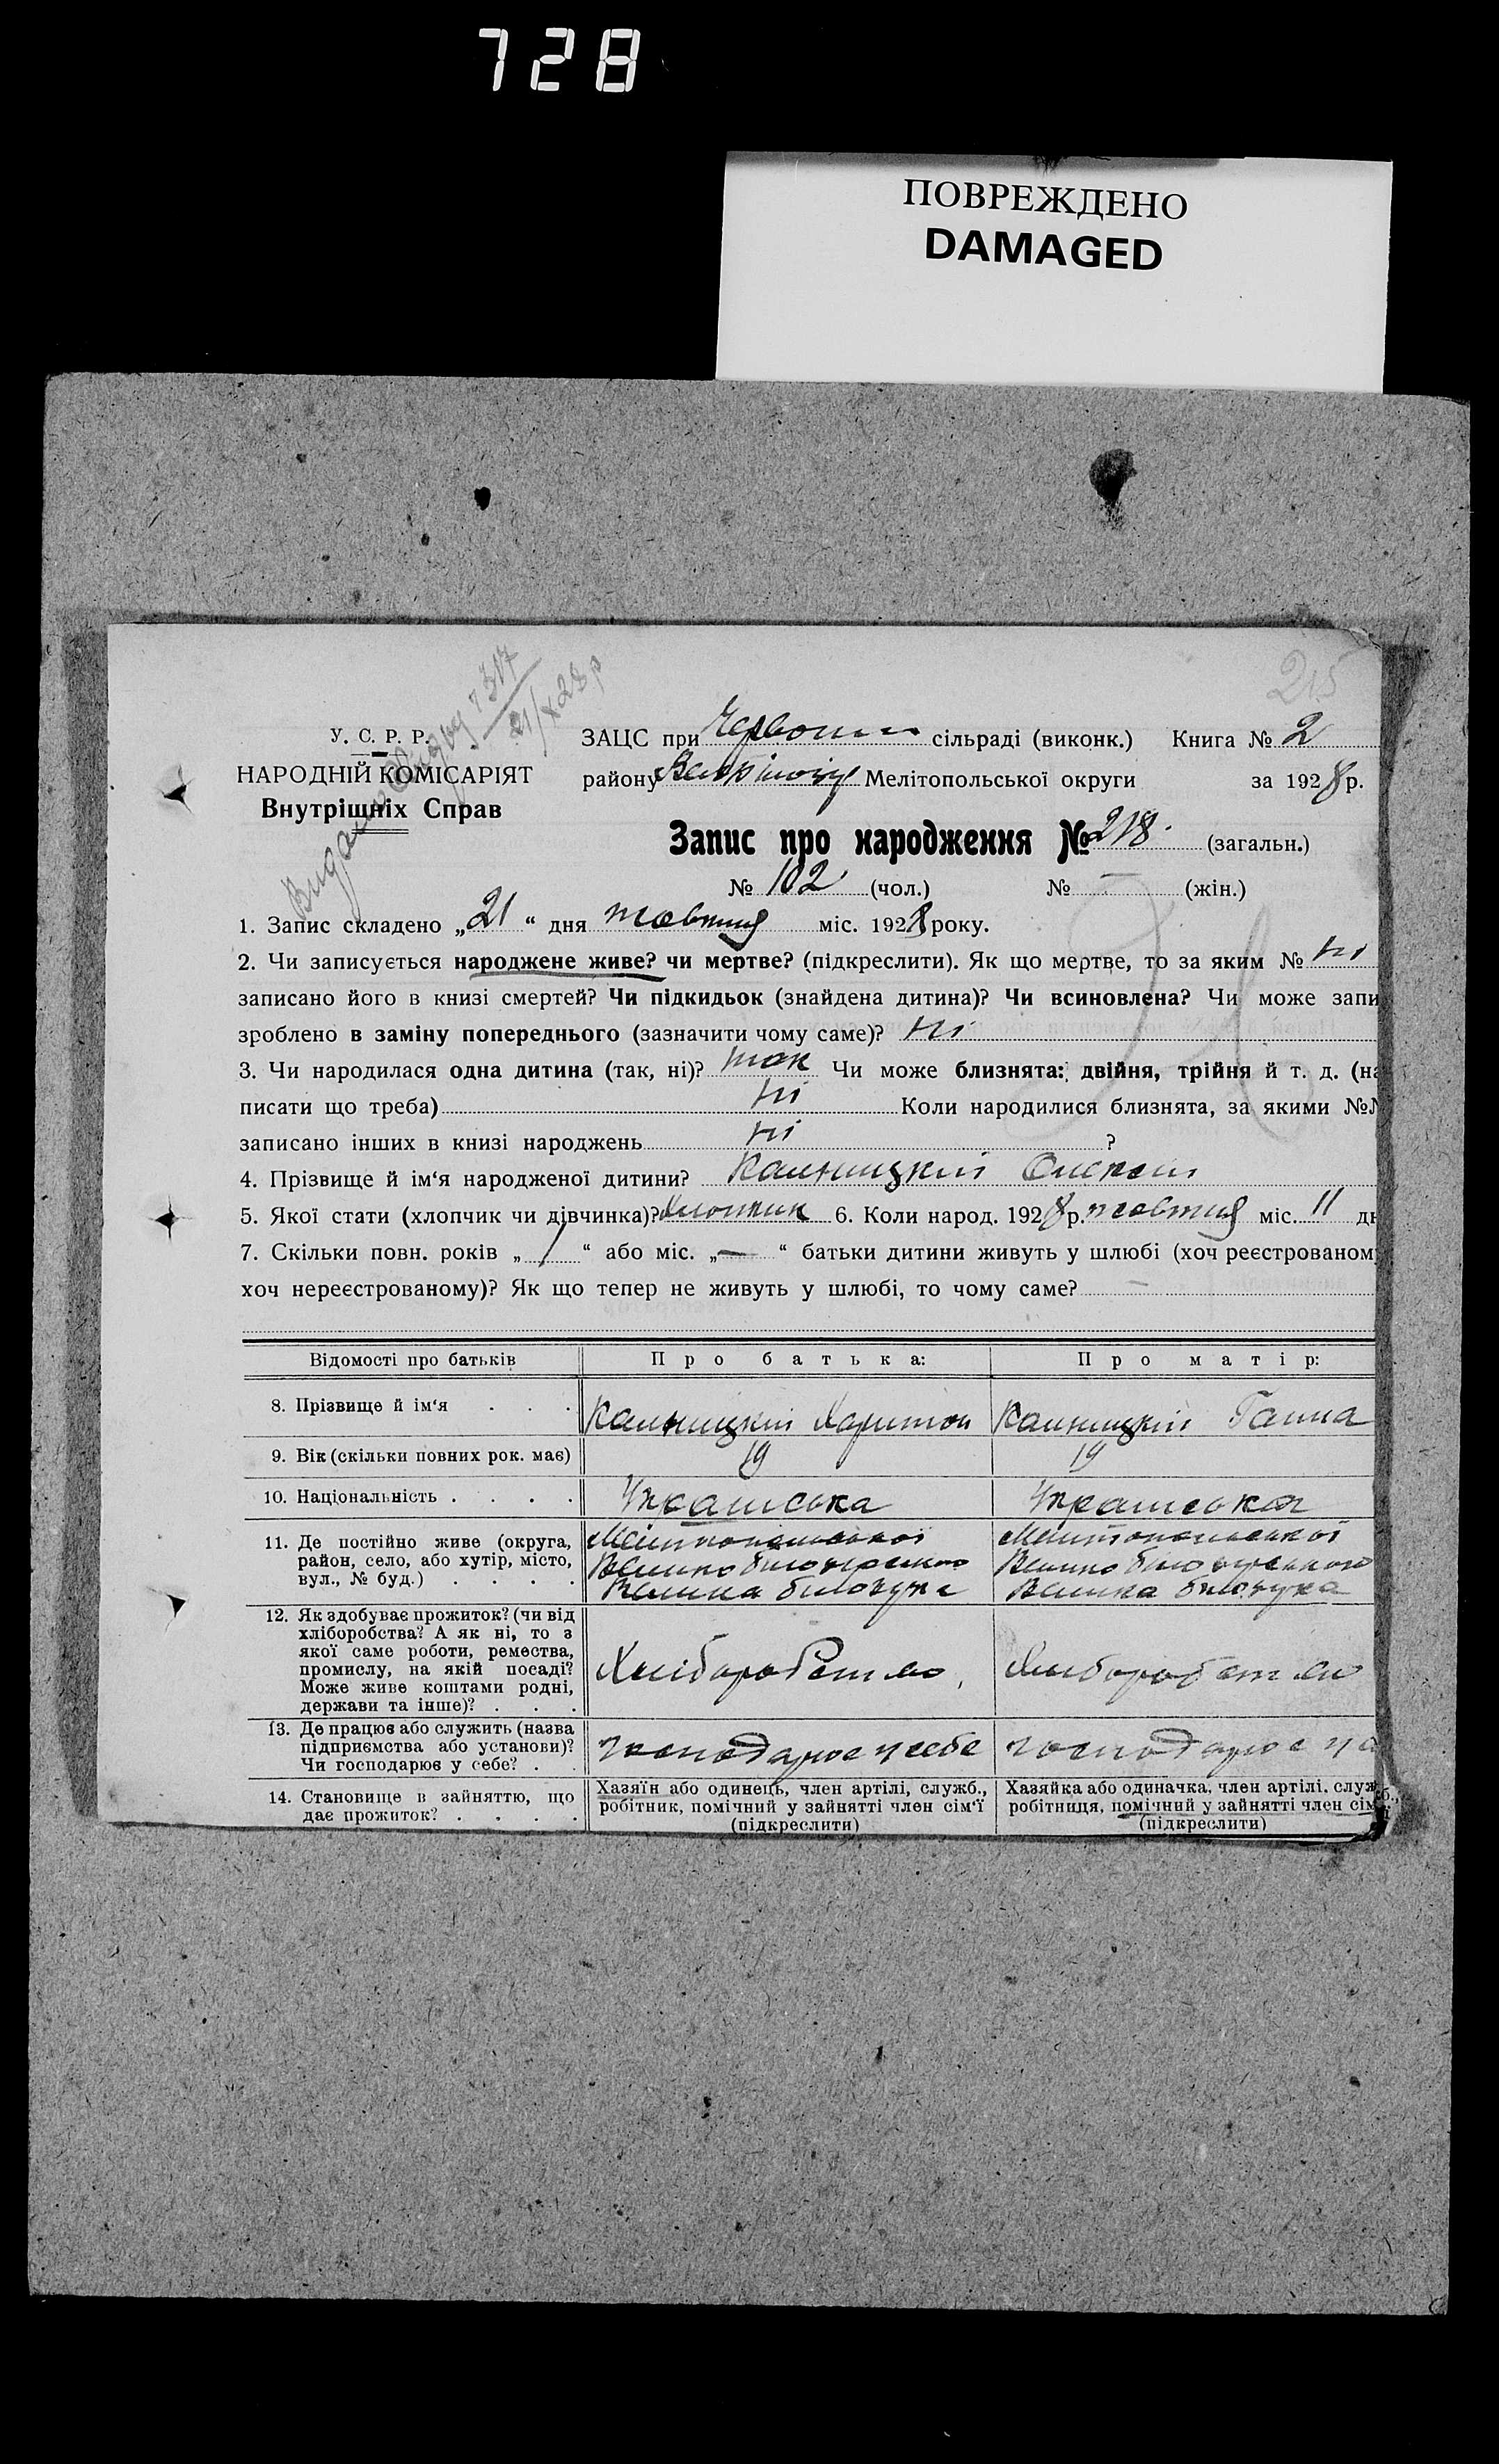 728
ПОВРЕЖДЕНО
DAMAGED
215
№ 317
21/X 28 р
У. С. Р. Р.
НАРОДНІЙ КОМІСАРІЯТ
Внутрішніх Справ
ЗАЦС при Червоній сільраді (виконк.) Книга № 2
району Мелітопольської округи за 1928 р.
Запис про народження № 218. (загальн.)
№ 102 (чол.) № — (жін.)
1. Запис складено „21“ дня жовтня міс. 1928 року.
2. Чи записується народжене живе? чи мертве? (підкреслити). Як що мертве, то за яким № ні
записано його в книзі смертей? Чи підкидьок (знайдена дитина)? Чи всиновлена? Чи може запи
зроблено в заміну попереднього (зазначити чому саме)? ні
3. Чи народилася одна дитина (так, ні)? так Чи може близнята: двійня, трійня й т. д. (на
писати що треба) ні Коли народилися близнята, за якими №№
записано інших в книзі народжень ні ?
4. Прізвище й ім‘я народженої дитини? Кальницкій Олексій
5. Якої стати (хлопчик чи дівчинка)? Хлопчик 6. Коли народ. 1928 р. жовтня міс. 11 дн
7. Скільки повн. років „1“ або міс. „—“ батьки дитини живуть у шлюбі (хоч реєстрованому
хоч нереєстрованому)? Як що тепер не живуть у шлюбі, то чому саме? —
Відомості про батьків Про батька: Про матір:
8. Прізвище й ім‘я . . . Кальницкій Харитон Кальницкій Ганна
9. Вік (скільки повних рок. має) 19 19
10. Національність . . . . Українська Українська
11. Де постійно живе (округа, Мелітопольської Мелітопольської
район, село, або хутір, місто, Велико білозірського Велико білозірського
вул., № буд.) . . . . Велика білозірка Велика білозірка
12. Як здобуває прожиток? (чи від
хліборобства? А як ні, то з
якої саме роботи, ремества,
промислу, на якій посаді? Хлібороб Хлібороб
Може живе коштами родні,
держави та інше)? . . .
13. Де працює або служить (назва
підприємства або установи)? господарює у себе господарює у с
Чи господарює у себе? . .
14. Становище в зайняттю, що Хазяїн або одинець, член артілі, служб., Хазяйка або одиначка, член артілі, служб.,
дає прожиток? . . . . робітник, помічний у зайнятті член сім‘ї робітниця, помічний у зайнятті член сім
(підкреслити) (підкреслити)